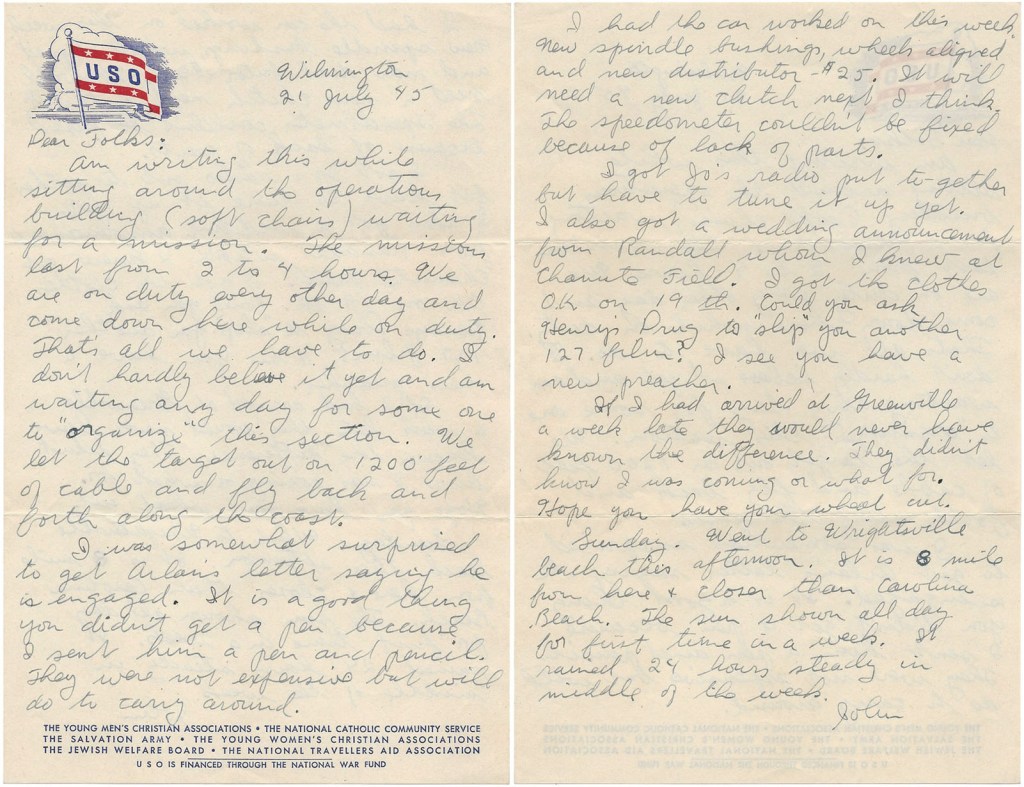 USO
Wilmington
21 July 45
Dear Folks:
Am writing this while
sitting around the operations
building (soft chairs) waiting
for a mission. The missions
last from 2 to 4 hours. We
are on duty every other day and
come down here while on duty.
That's all we have to do. I
don't hardly believe it yet and am
waiting any day for some one
to "organize" this section. We
let the target out on 1200 feet
of cable and fly back and
forth along the coast.
I was somewhat surprised
to get Arlan's letter saying he
is engaged. It is a good thing
you didn't get a pen because
I sent him a pen and pencil.
They were not expensive but will
do to carry around.
THE YOUNG MEN'S CHRISTIAN ASSOCIATIONS • THE NATIONAL CATHOLIC COMMUNITY SERVICE
THE SALVATION ARMY • THE YOUNG WOMEN'S CHRISTIAN ASSOCIATIONS
THE JEWISH WELFARE BOARD • THE NATIONAL TRAVELLERS AID ASSOCIATION
USO IS FINANCED THROUGH THE NATIONAL WAR FUND
I had the car worked on this week.
New spindle bushings, wheels aligned
and new distributor - $25. It will
need a new clutch next I think.
The speedometer couldn't be fixed
because of lack of parts.
I got Jo's radio put to-gether
but have to tune it up yet.
I also got a wedding announcement
from Randall whom I knew at
Chanute Field. I got the clothes
O.K. on 19 th. Could you ask
Henry's Drug to "slip" you another
127 film? I see you have a
new preacher.
If I had arrived at Greenville
a week late they would never have
known the difference. They didn't
know I was coming or what for.
Hope you have your wheat cut.
Sunday. Went to Wrightsville
beach this afternoon. It is 8 mile
from here & closer than Carolina
Beach. The sun shown all day
for first time in a week. It
rained 24 hours steady in
middle of the week.
John